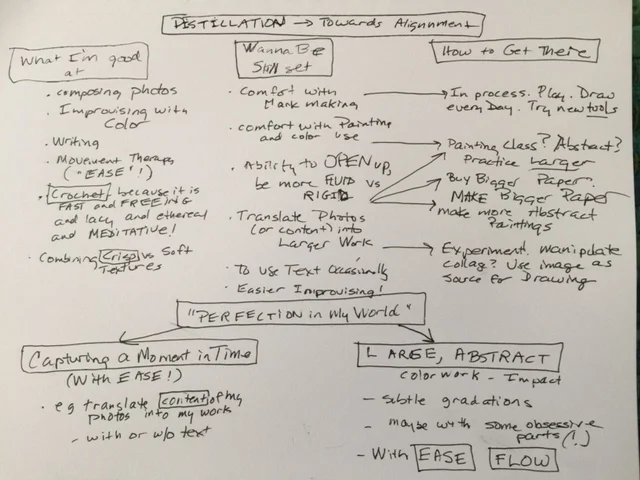 DISTILLATION → Towards Alignment
What I'm good
at
• composing photos
• Improvising with
Color
• Writing
• Movement Therapy
("EASE"!)
• Crochet because it is
FAST and FREEING
and lacy and ethereal
and MEDITATIVE!
• Combining Crisp vs Soft
Textures
Wanna Be
Skill set
• Comfort with
Mark making
• comfort with Painting
and color use
• Ability to OPEN up,
be more FLUID vs
RIGID
• Translate Photos
(or content) into
Larger Work
• To use Text occasionally
• Easier Improvising!
How to Get There
In process. Play. Draw
every Day. Try new tools
Painting class? Abstract?
Practice Larger
Buy Bigger Paper.
MAKE Bigger Paper
make more Abstract
Paintings
Experiment. manipulate
collag? Use image as
source for Drawing
"PERFECTION in My World"
Capturing a Moment in Time
(With EASE!)
• eg translate content of my
photos into my work
- with or w/o text
LARGE, ABSTRACT
color work - Impact
- subtle gradations
- maybe with some obsessive
parts (!)
- With EASE FLOW